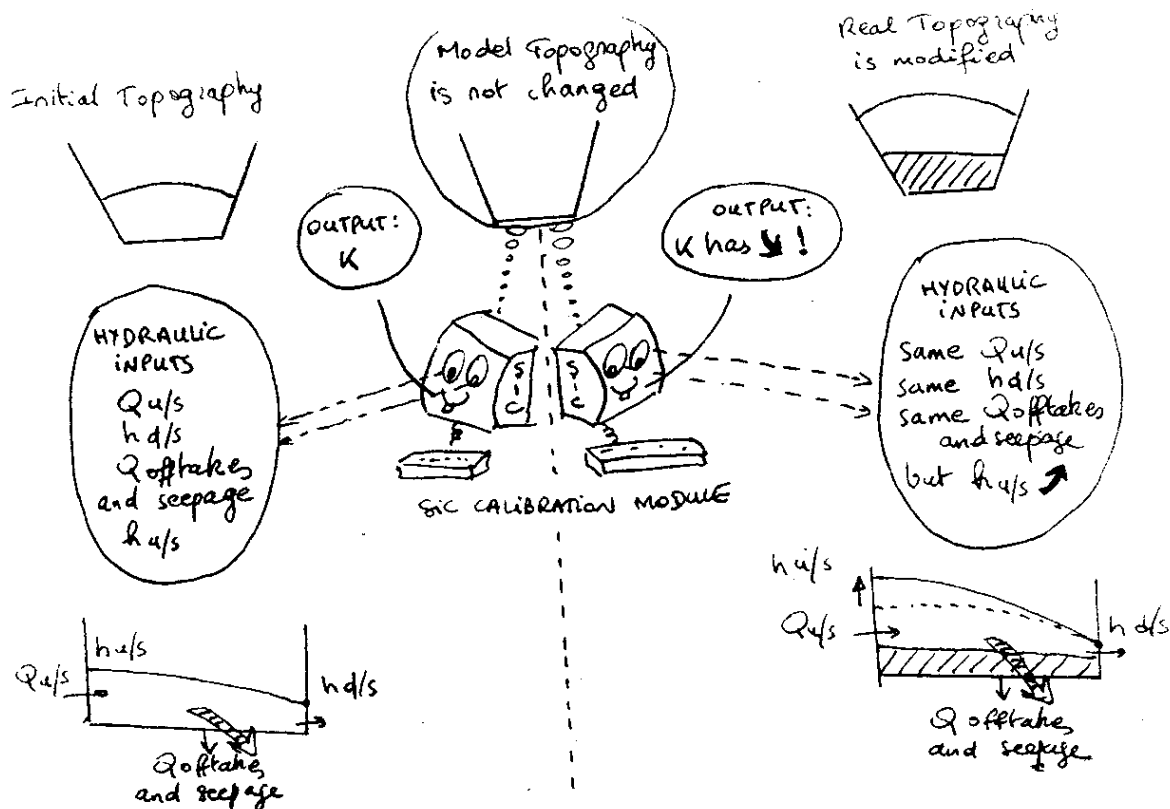 Initial Topography
Model Topography
is not changed
Real Topography
is modified
OUTPUT:
K
OUTPUT:
K has ↘ !
HYDRAULIC
INPUTS
Qu/s
hd/s
Qofftakes
and seepage
hu/s
SIC
SIC
SIC CALIBRATION MODULE
HYDRAULIC
INPUTS
same Qu/s
same hd/s
same Qofftakes
and seepage
but hu/s ↗
hu/s
Qu/s
hd/s
Qofftakes
and seepage
hu/s
Qu/s
hd/s
Qofftakes
and seepage